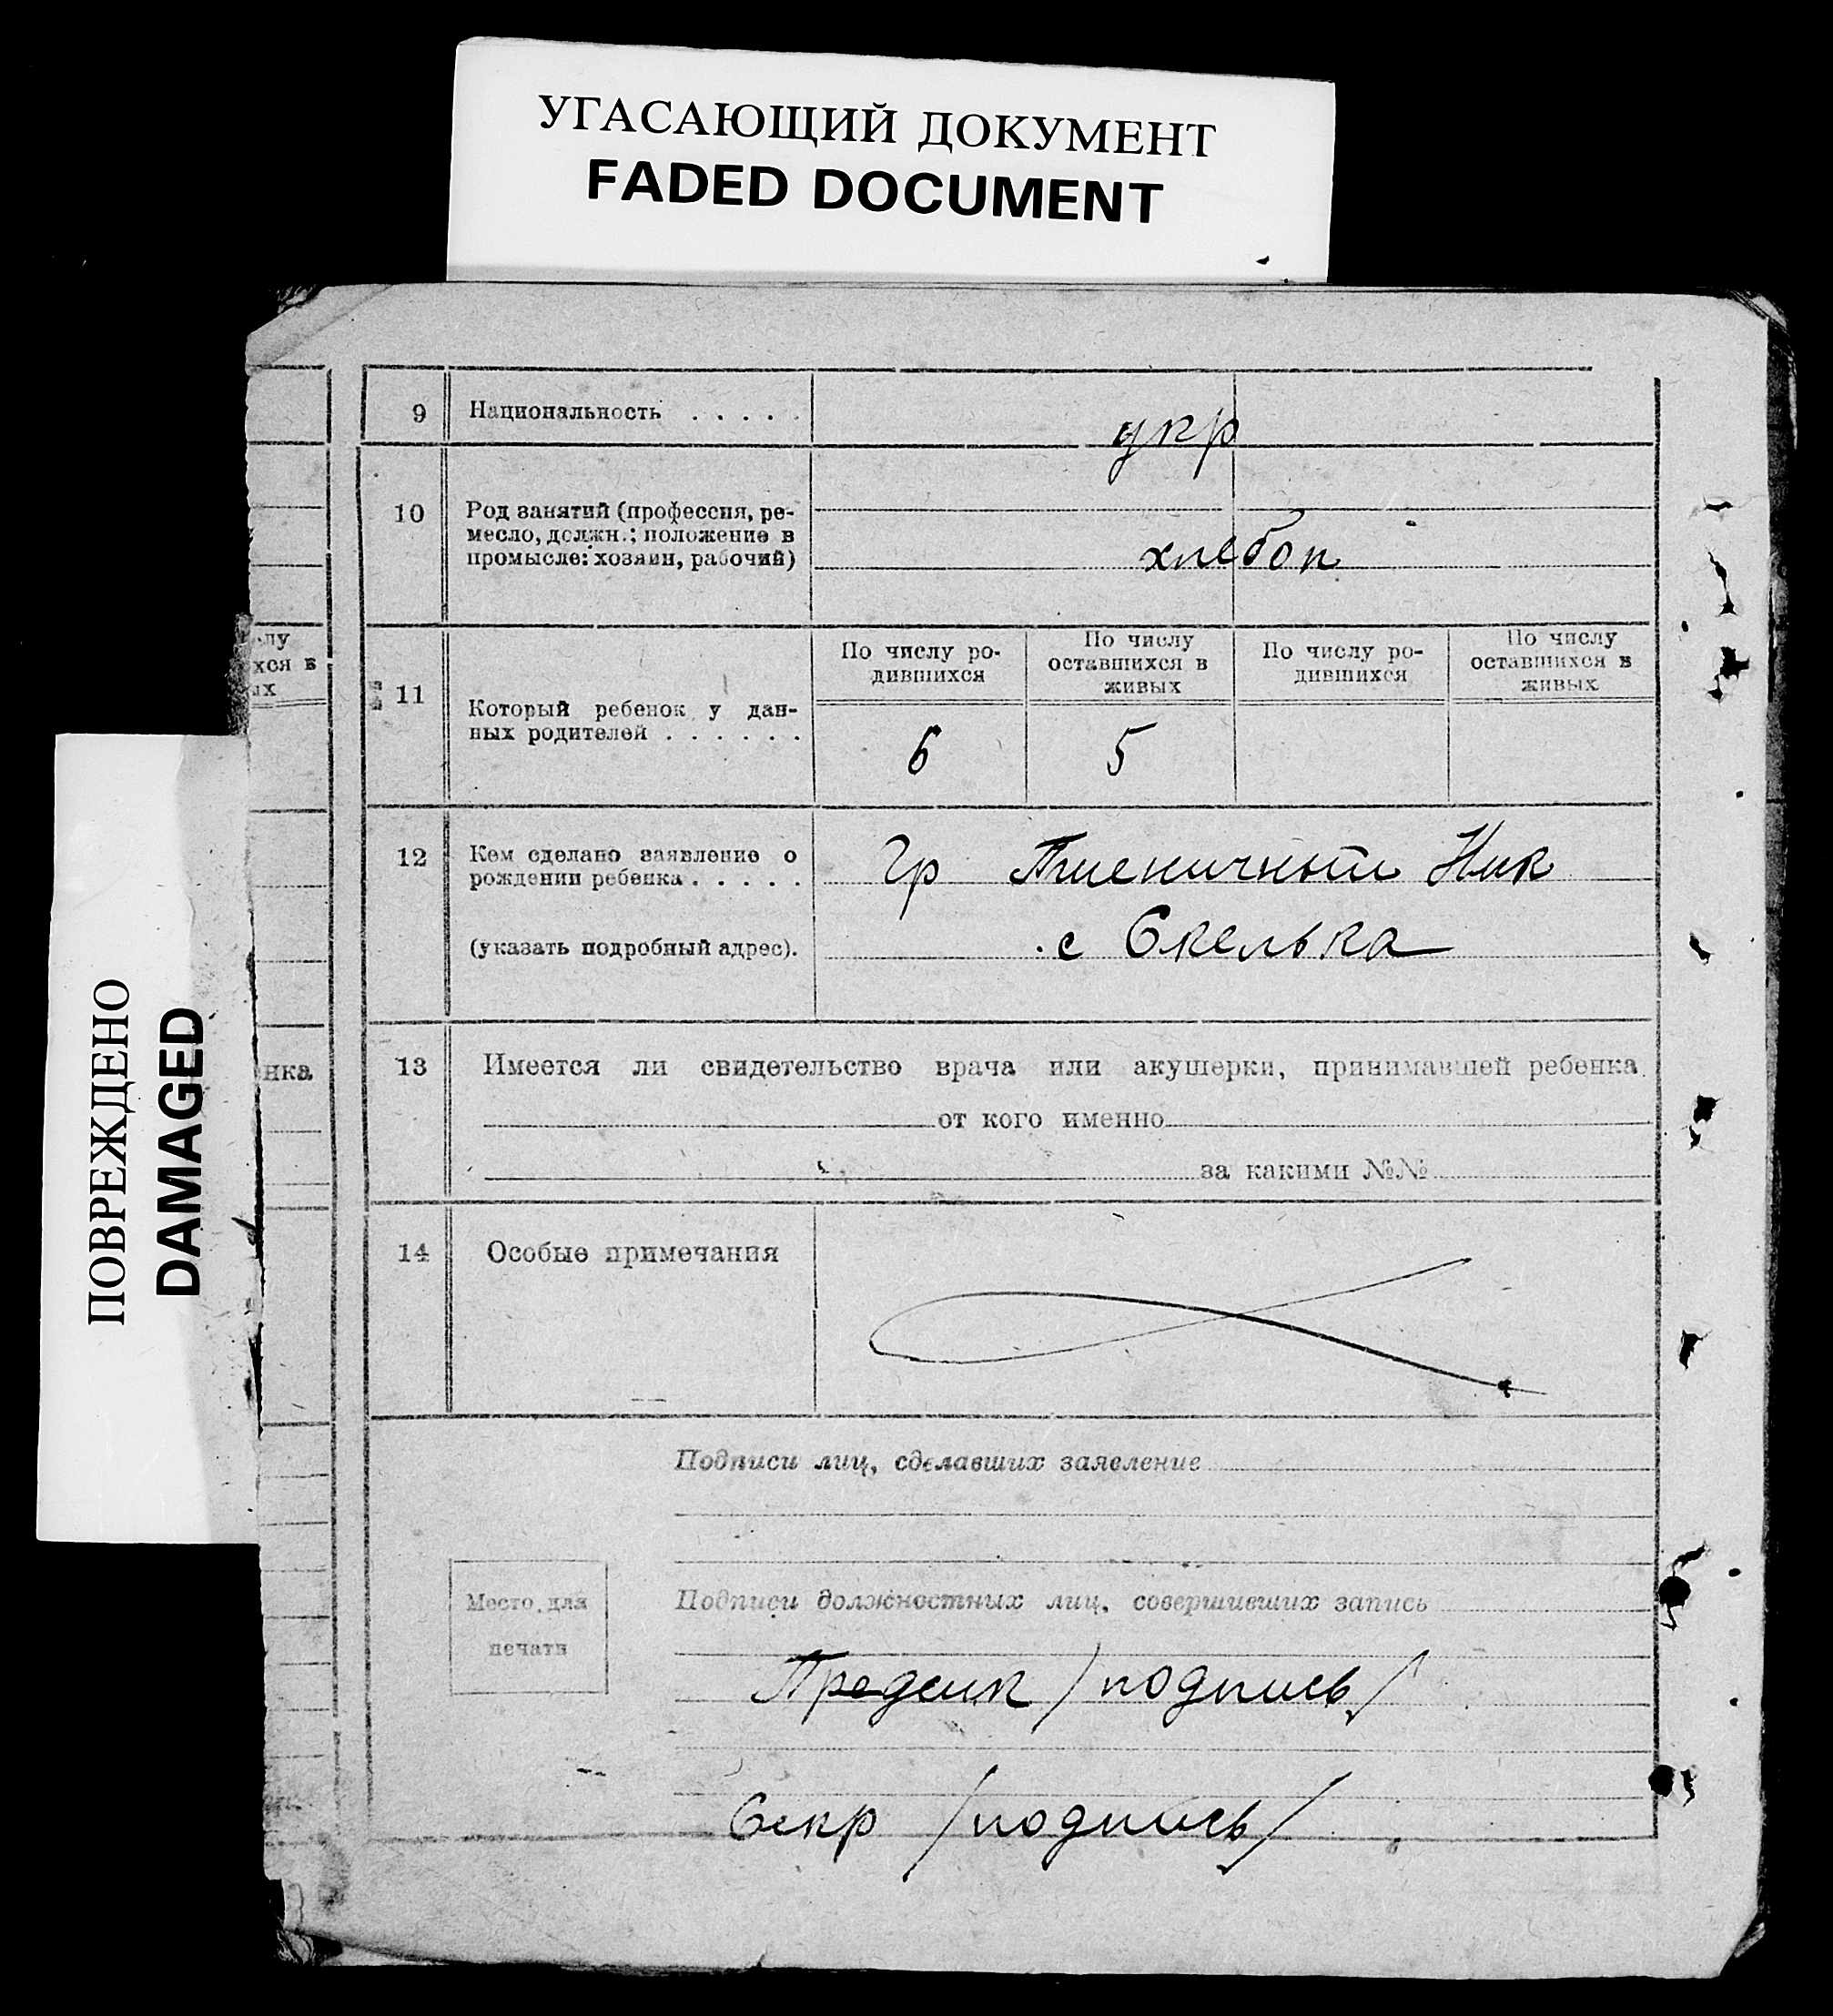 УГАСАЮЩИЙ ДОКУМЕНТ
FADED DOCUMENT
ПОВРЕЖДЕНО
DAMAGED
лу
хся в
ых
нка
9 Национальность . . . . .
укр
10 Род занятий (профессия, ре-
месло, должн.; положение в
промысле: хозяин, рабочий)
хлебоп
11 Который ребенок у дан-
ных родителей . . . . . .
По числу ро-
дившихся
По числу
оставшихся в
живых
По числу ро-
дившихся
По числу
оставшихся в
живых
6 5
12 Кем сделано заявление о
рождении ребенка . . . . .
(указать подробный адрес).
Гр Пшеничный Ник
с Скелька
13 Имеется ли свидетельство врача или акушерки, принимавшей ребенка
от кого именно
за какими №№
14 Особые примечания
Подписи лиц, сделавших заявление
Место для
печати
Подписи должностных лиц, совершивших запись
Предсик /подпись/
Секр /подпись/